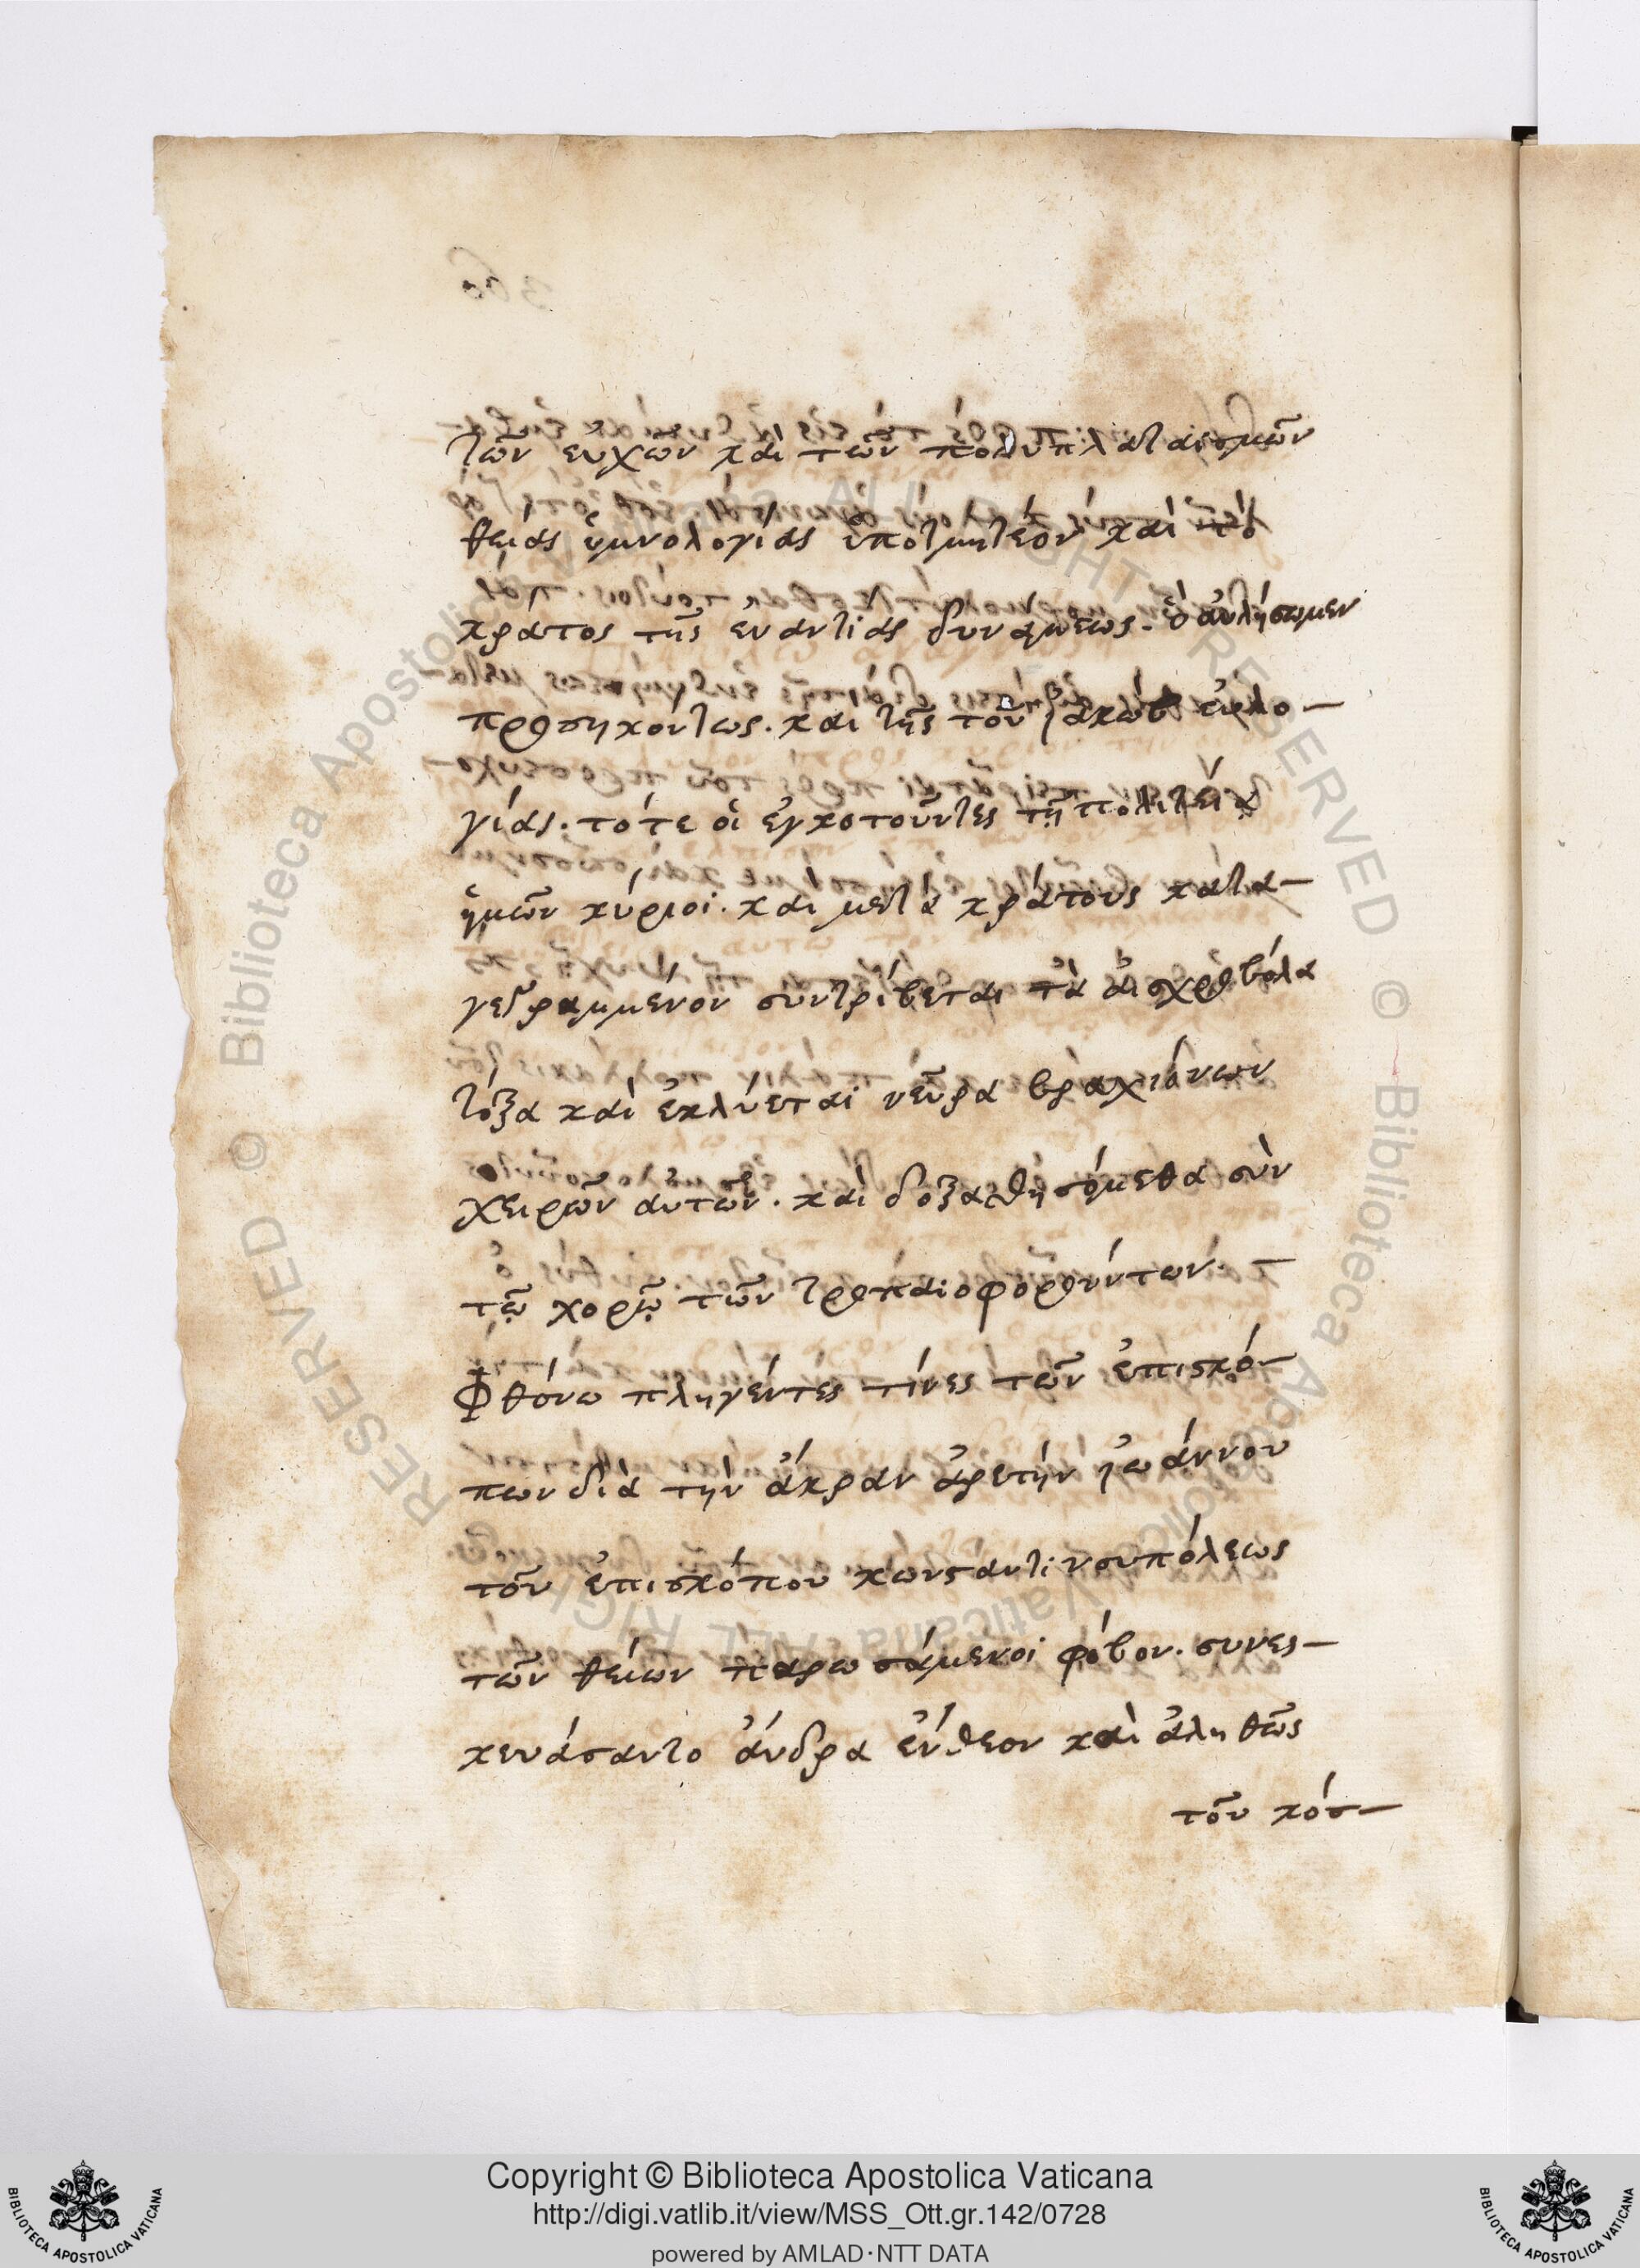 τῶν εὐχῶν καὶ τῶν πολυπλασιασμῶν
θείας ὑμνολογίας ὑποτμητέον καὶ τὸ
κράτος τῆς ἐναντίας δυνάμεως.
προσηκόντως. και τῆς τοῦ ἰακὼβ εὐλο-
γίας. τότε οἱ ἐγκοτοῦντες τῇ πολιτείᾳ
ἡμῶν κύριοι. και μετὰ κράτους κατα-
γεγραμμένον συντρίβεται τὰ αἰσχροβόλα
τόξα καὶ ἐκλύεται νεῦρα βραχιόνων
χειρῶν αὐτῶν. καὶ δοξασθησόμεθα σὺν
τῷ χορῷ τῶν τροπαιοφορούντων.
Φθόνω πληγέντες τίνες τῶν ἐπισκό-
πων διὰ τὴν ἄκραν ἀρετὴν ἰωάννου
τοῦ ἐπισκόπου κωνσταντινουπόλεως
τῶν θείων παρωσάμενοι φόβον. συνεσ-
κευάσαντο ἄνδρα ἔνθεον καὶ ἀληθῶς
τοῦ κόσ-
Copyright © Biblioteca Apostolica Vaticana
http://digi.vatlib.it/view/MSS_Ott.gr.142/0728
powered by AMLAD·NTT DATA
BIBLIOTECA APOSTOLICA VATICANA
BIBLIOTECA APOSTOLICA VATICANA